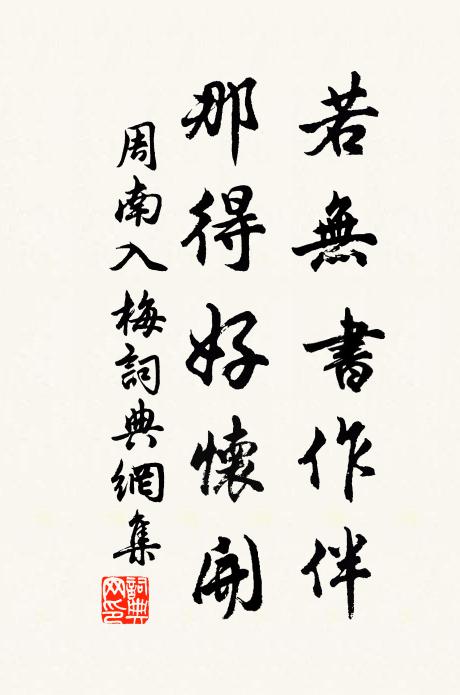 若無書作伴
那得好懷開
周南入梅詞典網集
詞典网印